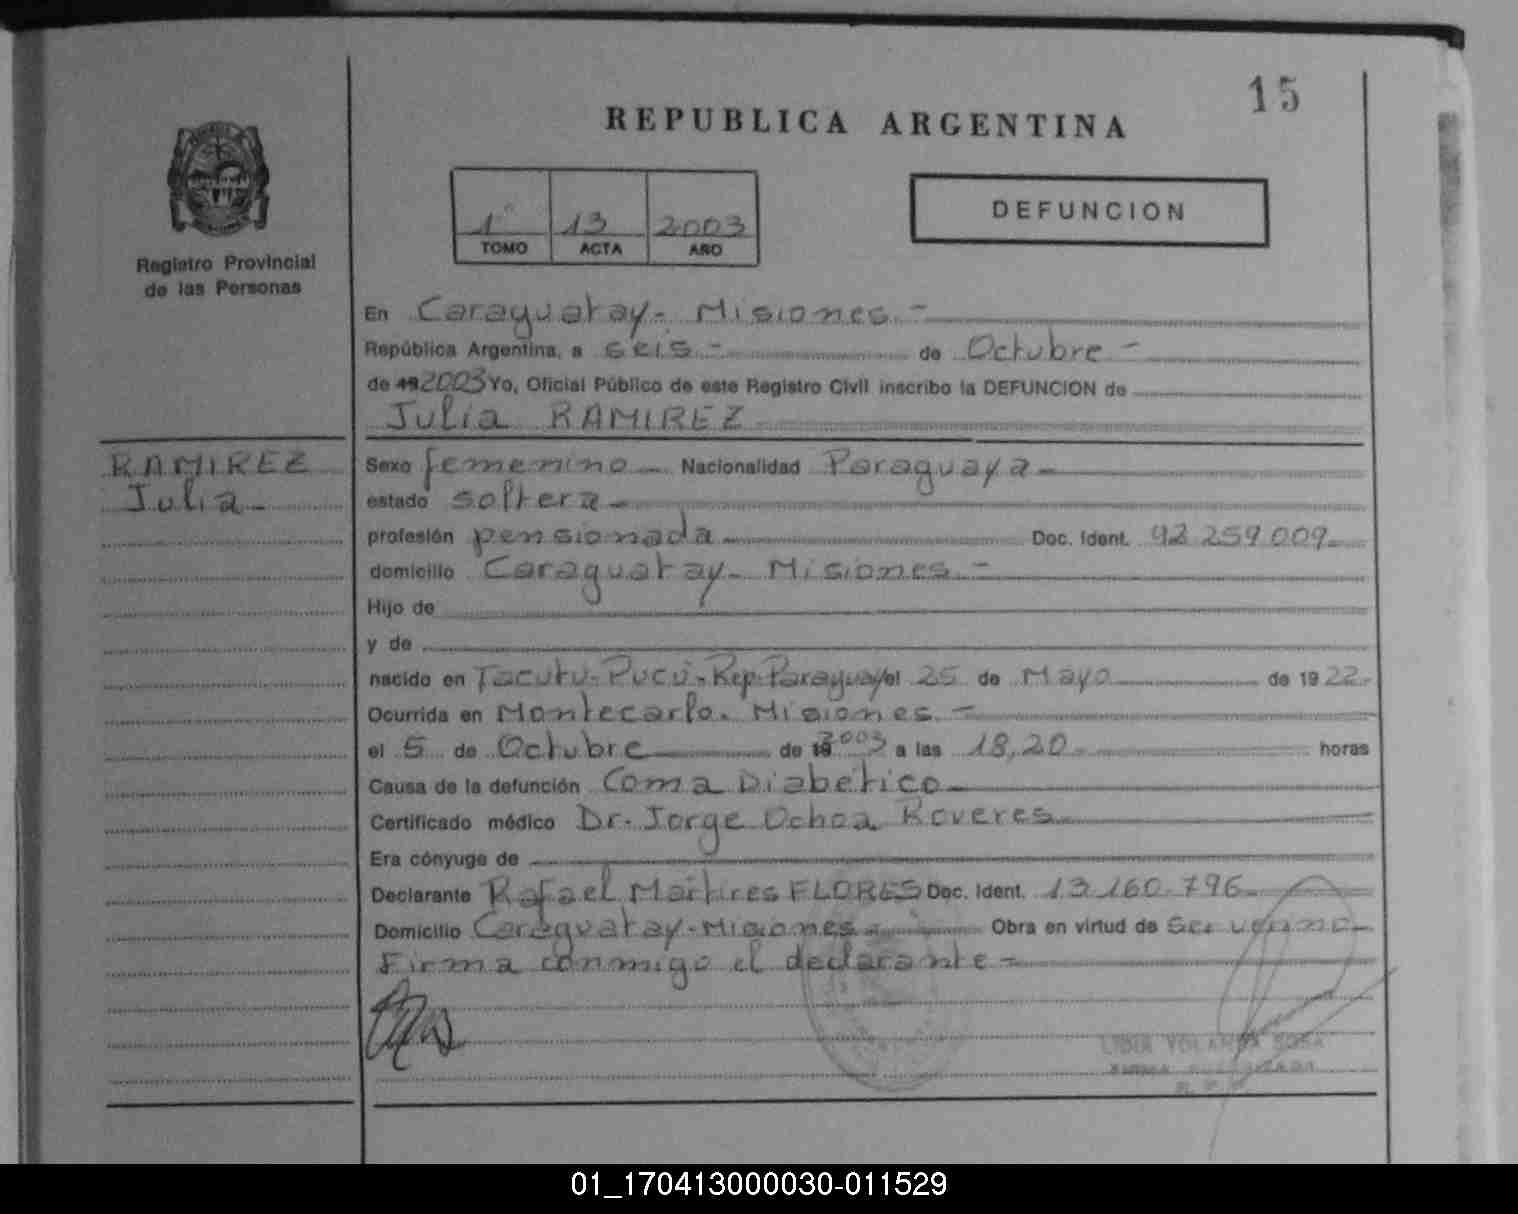 15
REPUBLICA ARGENTINA
1º 13 2003
TOMO ACTA AÑO
DEFUNCION
Registro Provincial
de las Personas
En Caraguatay - Misiones. -
República Argentina, a seis - de Octubre -
de 19 2003 Yo, Oficial Público de este Registro Civil inscribo la DEFUNCION de
Julia RAMIREZ
RAMIREZ
Julia -
Sexo femenino - Nacionalidad Paraguaya -
estado soltera -
profesión pensionada Doc. Ident. 92.259.009 -
domicilio Caraguatay - Misiones. -
Hijo de
y de
nacido en Tacuru-Pucú-Rep. Paraguay el 25 de Mayo de 1922.
Ocurrida en Montecarlo. Misiones. -
el 5 de Octubre de 19 2003 a las 18,20 - horas
Causa de la defunción Coma Diabético -
Certificado médico Dr. Jorge Ochoa Roveres
Era cónyuge de
Declarante Rafael Martires FLORES Doc. Ident. 13.160.796 -
Domicilio Caraguatay - Misiones - Obra en virtud de Ser
Firma conmigo el declarante -
LIDIA YOLANDA SOSA
01_170413000030-011529